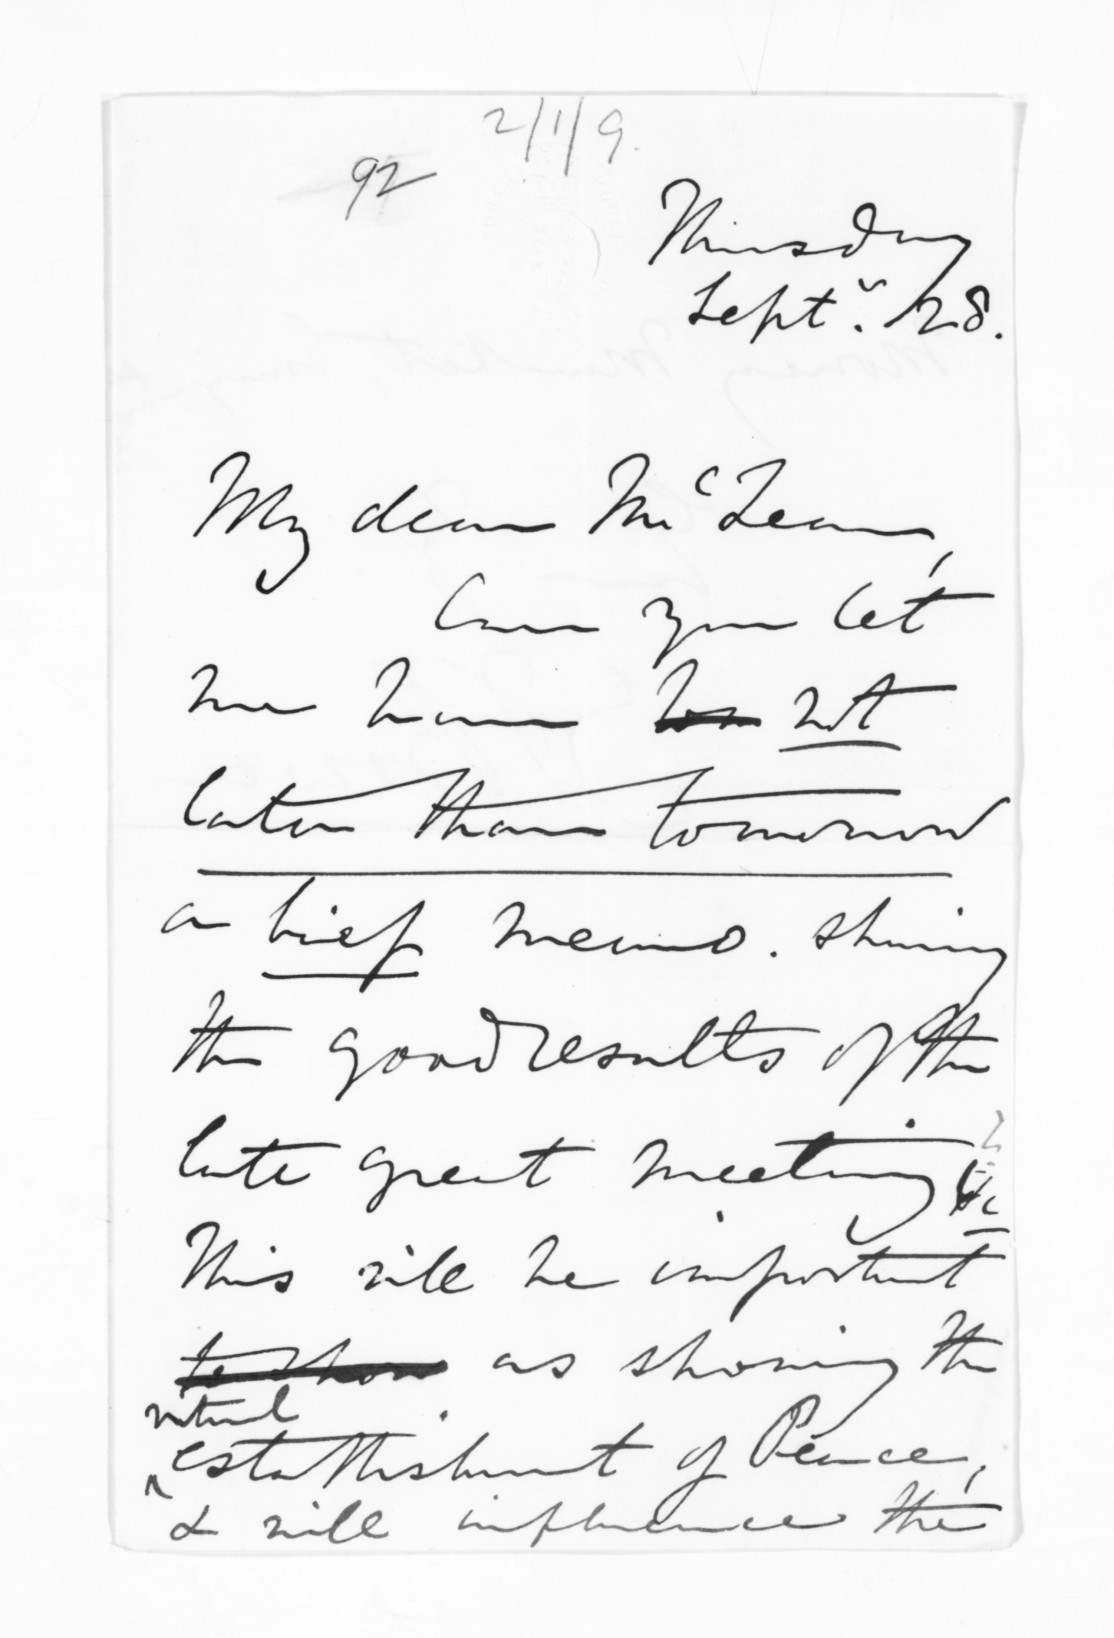 2/1/9.
92
Thursday
Septr. 28.
My dear McLean,
Can you let
me have not
later than tomorrow
a brief memo. showing
the good results of the
late great meeting
This will be important
to show as showing the
virtual
establishment of Peace,
& will influence the